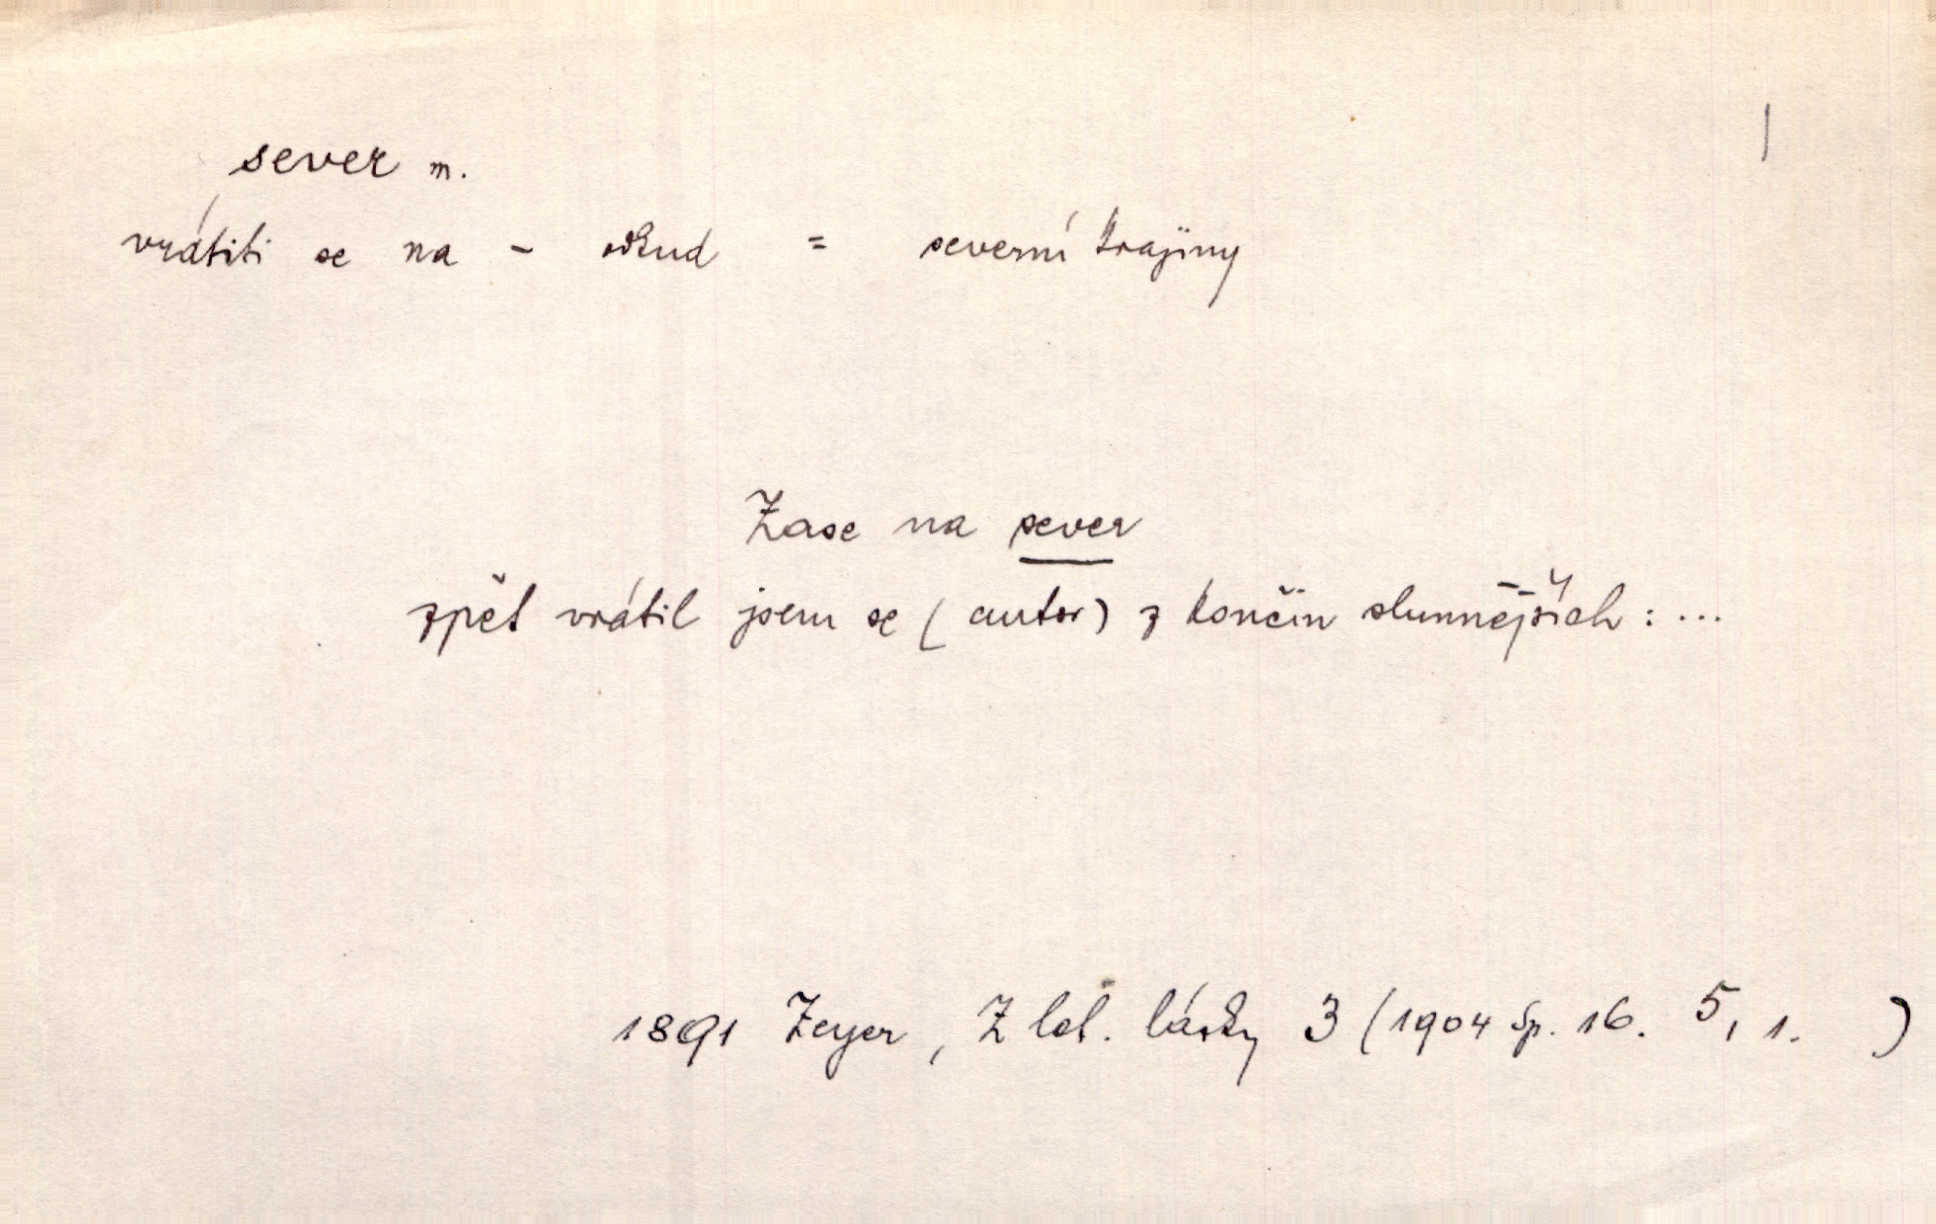 sever m.
vrátiti se na – odkud = severní krajiny
Zase na sever
zpět vrátil jsem se (autor) z končin slunnějších: ...
1891 Zeyer, Z let. lásky 3 (1904 Sp. 16. 5, 1. )